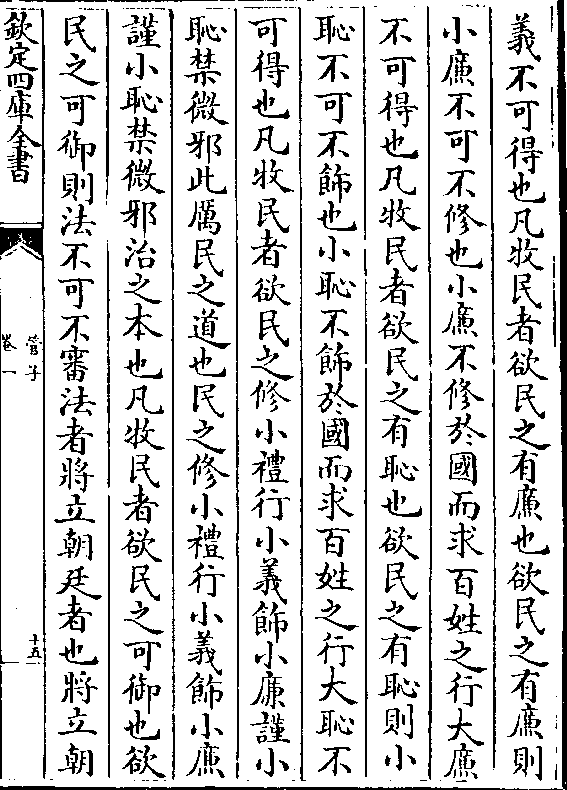 義不可得也凡牧民者欲民之有廉也欲民之有廉則
小廉不可不修也小廉不修於國而求百姓之行大廉
不可得也凡牧民者欲民之有恥也欲民之有恥則小
恥不可不飾也小恥不飾於國而求百姓之行大恥不
可得也凡牧民者欲民之修小禮行小義飾小廉謹小
恥禁微邪此厲民之道也民之修小禮行小義飾小廉
謹小恥禁微邪治之本也凡牧民者欲民之可御也欲
民之可御則法不可不審法者將立朝廷者也將立朝
欽定四庫全書
管子
卷一
十五